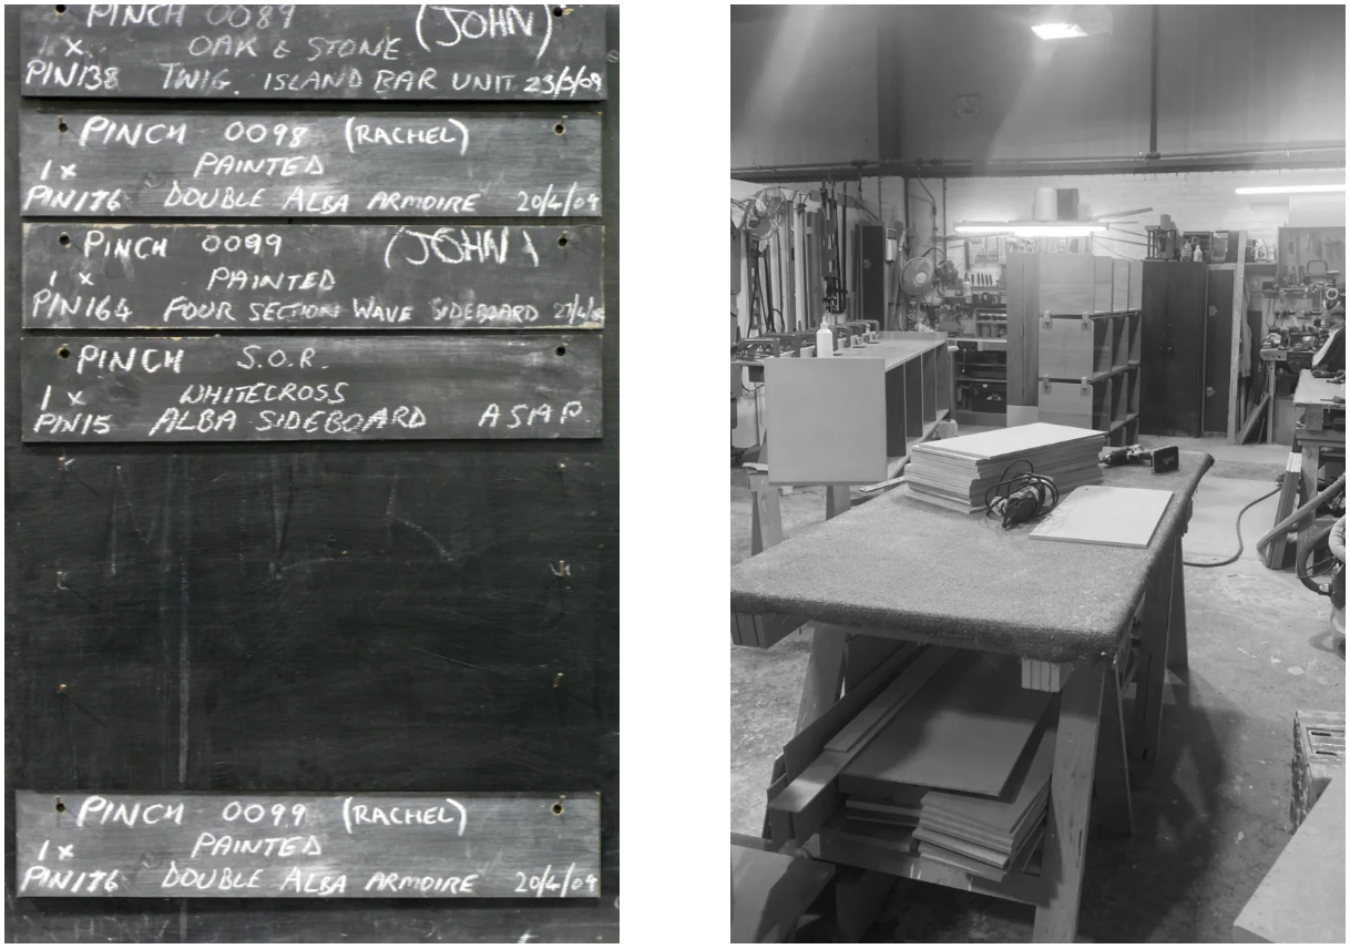 PINCH 0089 (JOHN)
1 x OAK & STONE
PIN138 TWIG. ISLAND BAR UNIT 23/3/09
PINCH 0098 (RACHEL)
1 x PAINTED
PIN176 DOUBLE ALBA ARMOIRE 20/4/09
PINCH 0099 (JOHN)
1 x PAINTED
PIN164 FOUR SECTION WAVE SIDEBOARD
PINCH S.O.R.
1 x WHITECROSS
PIN15 ALBA SIDEBOARD ASAP.
PINCH 0099 (RACHEL)
1 x PAINTED
PIN176 DOUBLE ALBA ARMOIRE 20/4/09